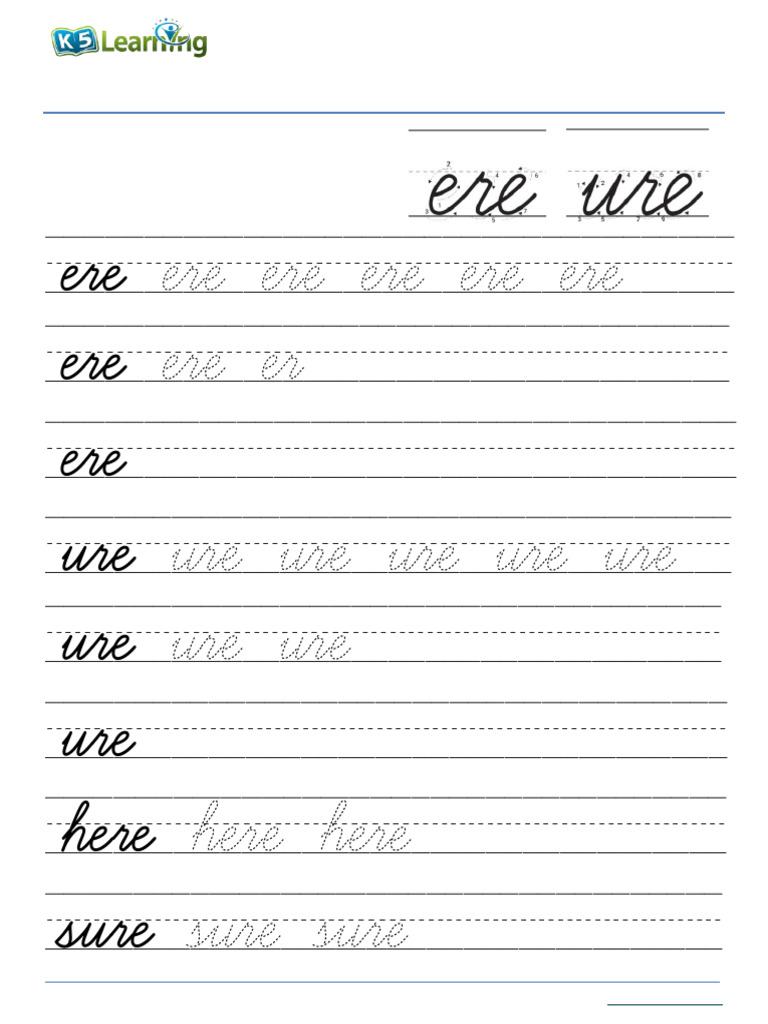 K5 Learning
ere ure
ere ere ere ere ere ere
ere ere er
ere
ure ure ure ure ure ure
ure ure ure
ure
here here here
sure sure sure